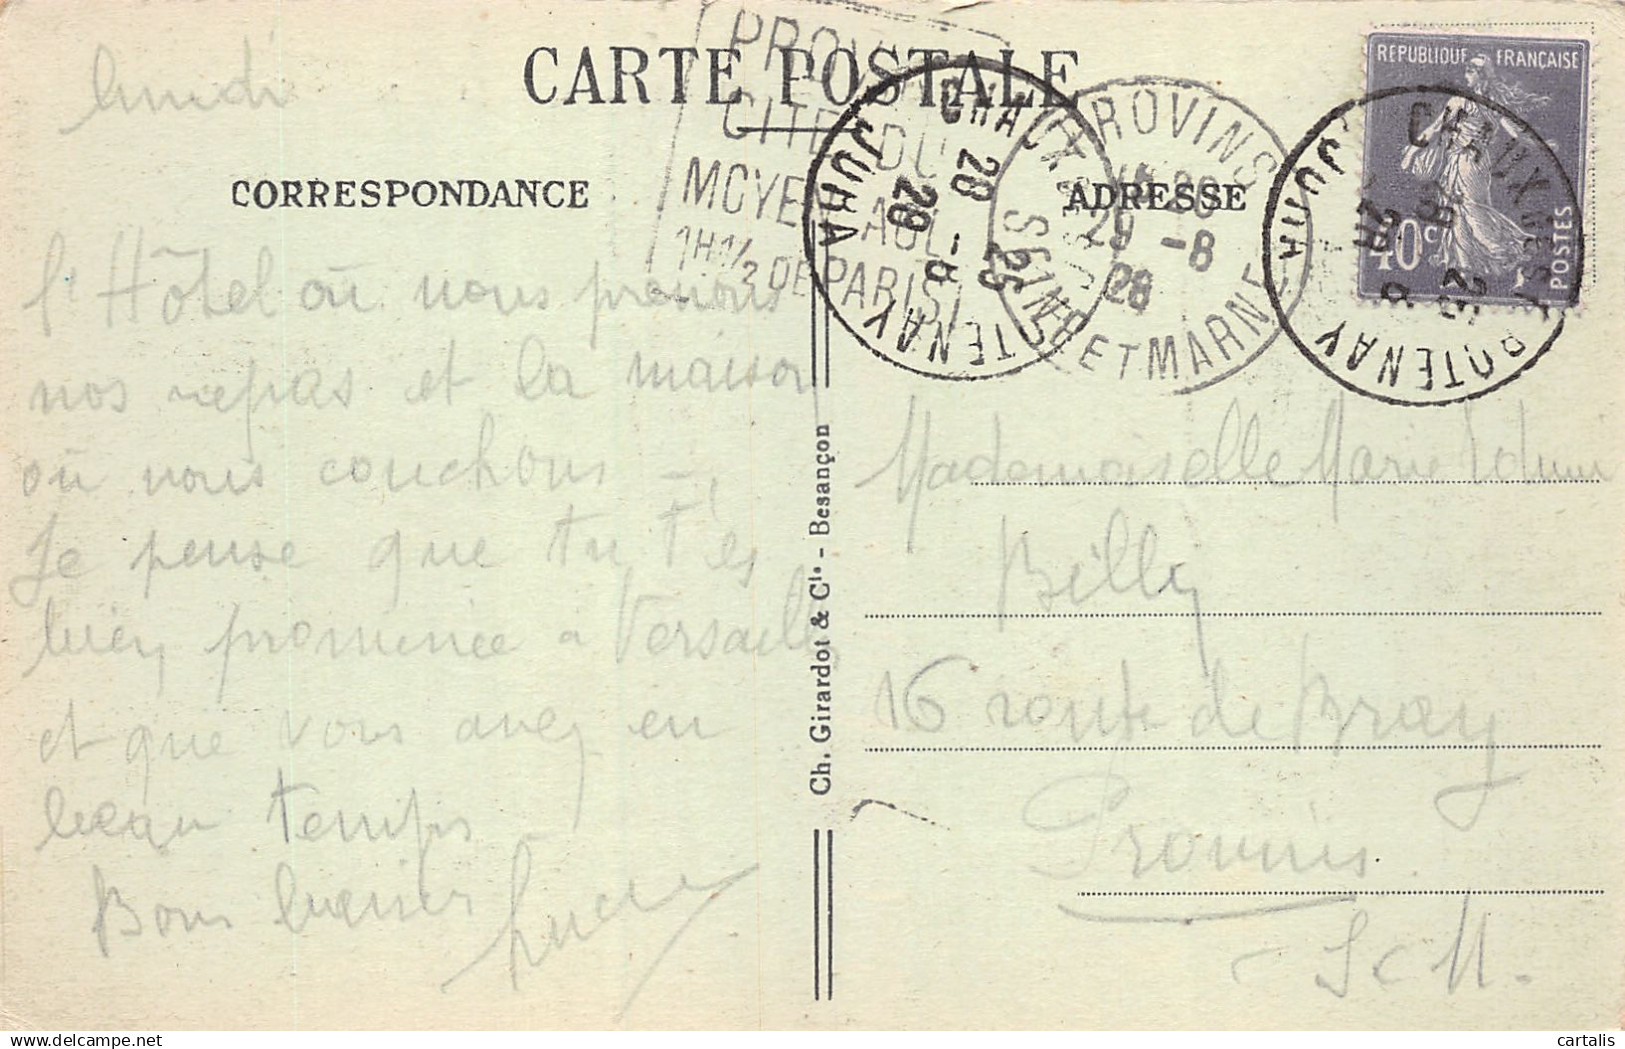 CARTE POSTALE
CORRESPONDANCE
ADRESSE
lundi
l'Hôtel où nous prenons
nos repas et la maison
où nous couchons —
Je pense que tu t'es
bien promenée à Versailles
et que vous avez en
beau temps
Bons baisers
Ch. Girardot & Cie - Besançon
PROVINS
CITE DU
MOYEN AGE
1H1/2 DE PARIS
CHAUX DES CROTENAY
JURA
28 -8 28
PROVINS
29 -8
28
SEINE ET MARNE
REPUBLIQUE FRANÇAISE
40c
POSTES
CHAUX DES CROTENAY
JURA
Mademoiselle Marie
Billy
16 route de Bray
Provins
S et M.
www.delcampe.net
cartalis